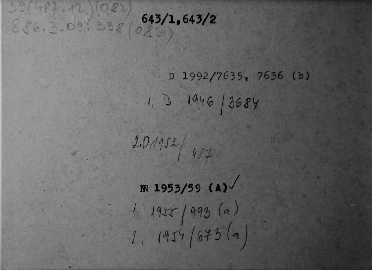 39(487.12)(082)
886.3.09:398(082)
643/1,643/2
D 1992/7635, 7636 (b)
1. D 1946/3684
2.D1952/487
N 1953/59 (A)✓
1. 1955/993 (a)
2. 1954/673 (a)